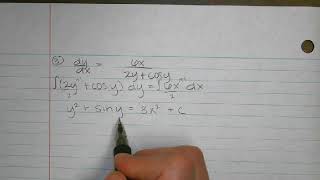 ③ dy/dx = 6x/(2y + cos y)
∫(2y^{+1}/2 + cos y) dy = ∫6x^{+1}/2 dx
y² + sin y = 3x² + c